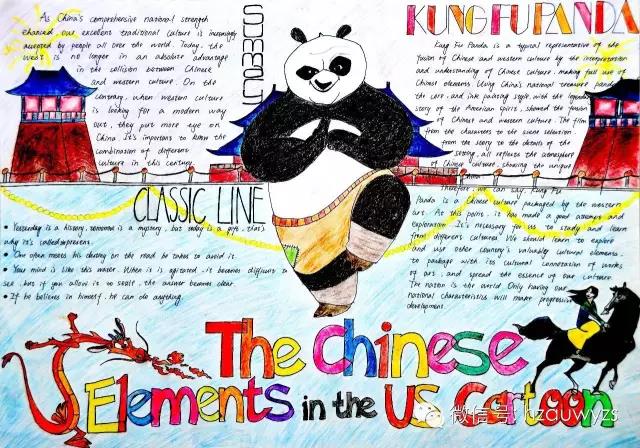 SUMMARY
As China's comprehensive national strength
enhanced, our excellent traditional culture is increasingly
accepted by people all over the world. Today, the
West is no longer in an absolute advantage
in the collision between Chinese
and western culture. On the
contrary, when western culture
is looking for a modern way
out, they put more eye on
China. It's important to know the
combination of different
culture in this century.
KUNG FU PANDA
Kung Fu Panda is a typical representative of the
fusion of Chinese and western culture by the interpretation
and understanding of Chinese culture, making full use of
Chinese elements. Using China's national treasure panda
the core, and ink painting style with the legendary
story of the American spirit, showed the fusion
of Chinese and western culture. The film
from the characters to the scene selection
from the story to the details of the
setting, all reflects the atmosphere
of Chinese culture, showing the unique
China
Therefore, we can say, Kung Fu
Panda is a Chinese culture packaged by the western
art. At this point, it has made a good attempt and
exploration. It's necessary for us to study and learn
from different cultures. We should learn to explore
and use other country's valuable cultural elements
to package with its cultural connotation of works
of art, and spread the essence of our culture.
The nation is the world. Only having our
national characteristics will make progressive
development.
CLASSIC LINE
• Yesterday is a history, tomorrow is a mystery, but today is a gift, that's
why it's called present.
• One often meets his destiny on the road he takes to avoid it.
• Your mind is like this water. When it is agitated, it becomes difficult to
see, but if you allow it to settle, the answer becomes clear.
• If he believes in himself, he can do anything.
The Chinese
Elements in the US Cartoon
微信号: hzdluwyzs